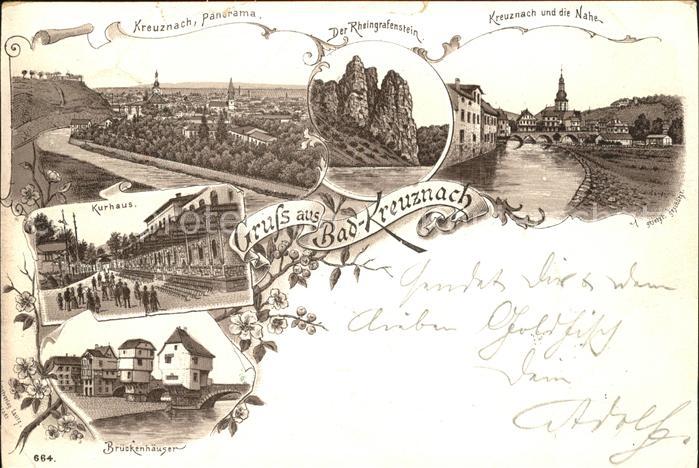 Kreuznach, Panorama.
Der Rheingrafenstein.
Kreuznach und die Nahe.
Kurhaus.
Gruss aus
Bad-Kreuznach
Sendet Dir & dem
lieben Goldfisch
Dein
Adolf.
Brückenhäuser
664.